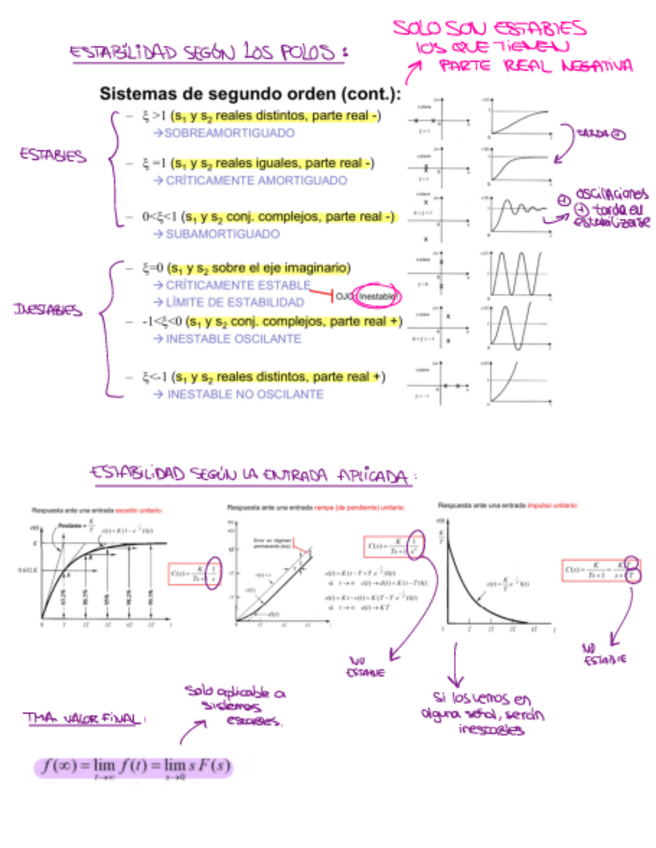 ESTABILIDAD SEGÚN LOS POLOS:
SOLO SON ESTABLES
LOS QUE TIENEN
PARTE REAL NEGATIVA
Sistemas de segundo orden (cont.):
ESTABLES
– ξ >1 (s₁ y s₂ reales distintos, parte real -)
→SOBREAMORTIGUADO
TARDA ⊕
– ξ =1 (s₁ y s₂ reales iguales, parte real -)
→ CRÍTICAMENTE AMORTIGUADO
– 0<ξ<1 (s₁ y s₂ conj. complejos, parte real -)
→ SUBAMORTIGUADO
⊕ OSCILACIONES
⊕ tarda en
estabilizarse
INESTABLES
– ξ=0 (s₁ y s₂ sobre el eje imaginario)
→ CRÍTICAMENTE ESTABLE
→ LÍMITE DE ESTABILIDAD
OJO (Inestable)
– -1<ξ<0 (s₁ y s₂ conj. complejos, parte real +)
→ INESTABLE OSCILANTE
– ξ<-1 (s₁ y s₂ reales distintos, parte real +)
→ INESTABLE NO OSCILANTE
ESTABILIDAD SEGÚN LA ENTRADA APLICADA:
Respuesta ante una entrada escalón unitario:
Pendiente = K/T
0.632 K
63.2%
86.5%
95%
98.2%
99.3%
T 2T 3T 4T 5T t
C(s) = K/(Ts+1) 1/s
Respuesta ante una entrada rampa (de pendiente) unitaria:
Error en régimen
permanente (ess)
C(s) = K/(Ts+1) 1/s²
NO
ESTABLE
Respuesta ante una entrada impulso unitario:
K/T
T 2T 3T 4T
NO
ESTABLE
Si los vemos en
alguna señal, serán
inestables
TMA. VALOR FINAL:
Solo aplicable a
sistemas
estables.
f(∞) = lim f(t) = lim s F(s)
t→∞ s→0